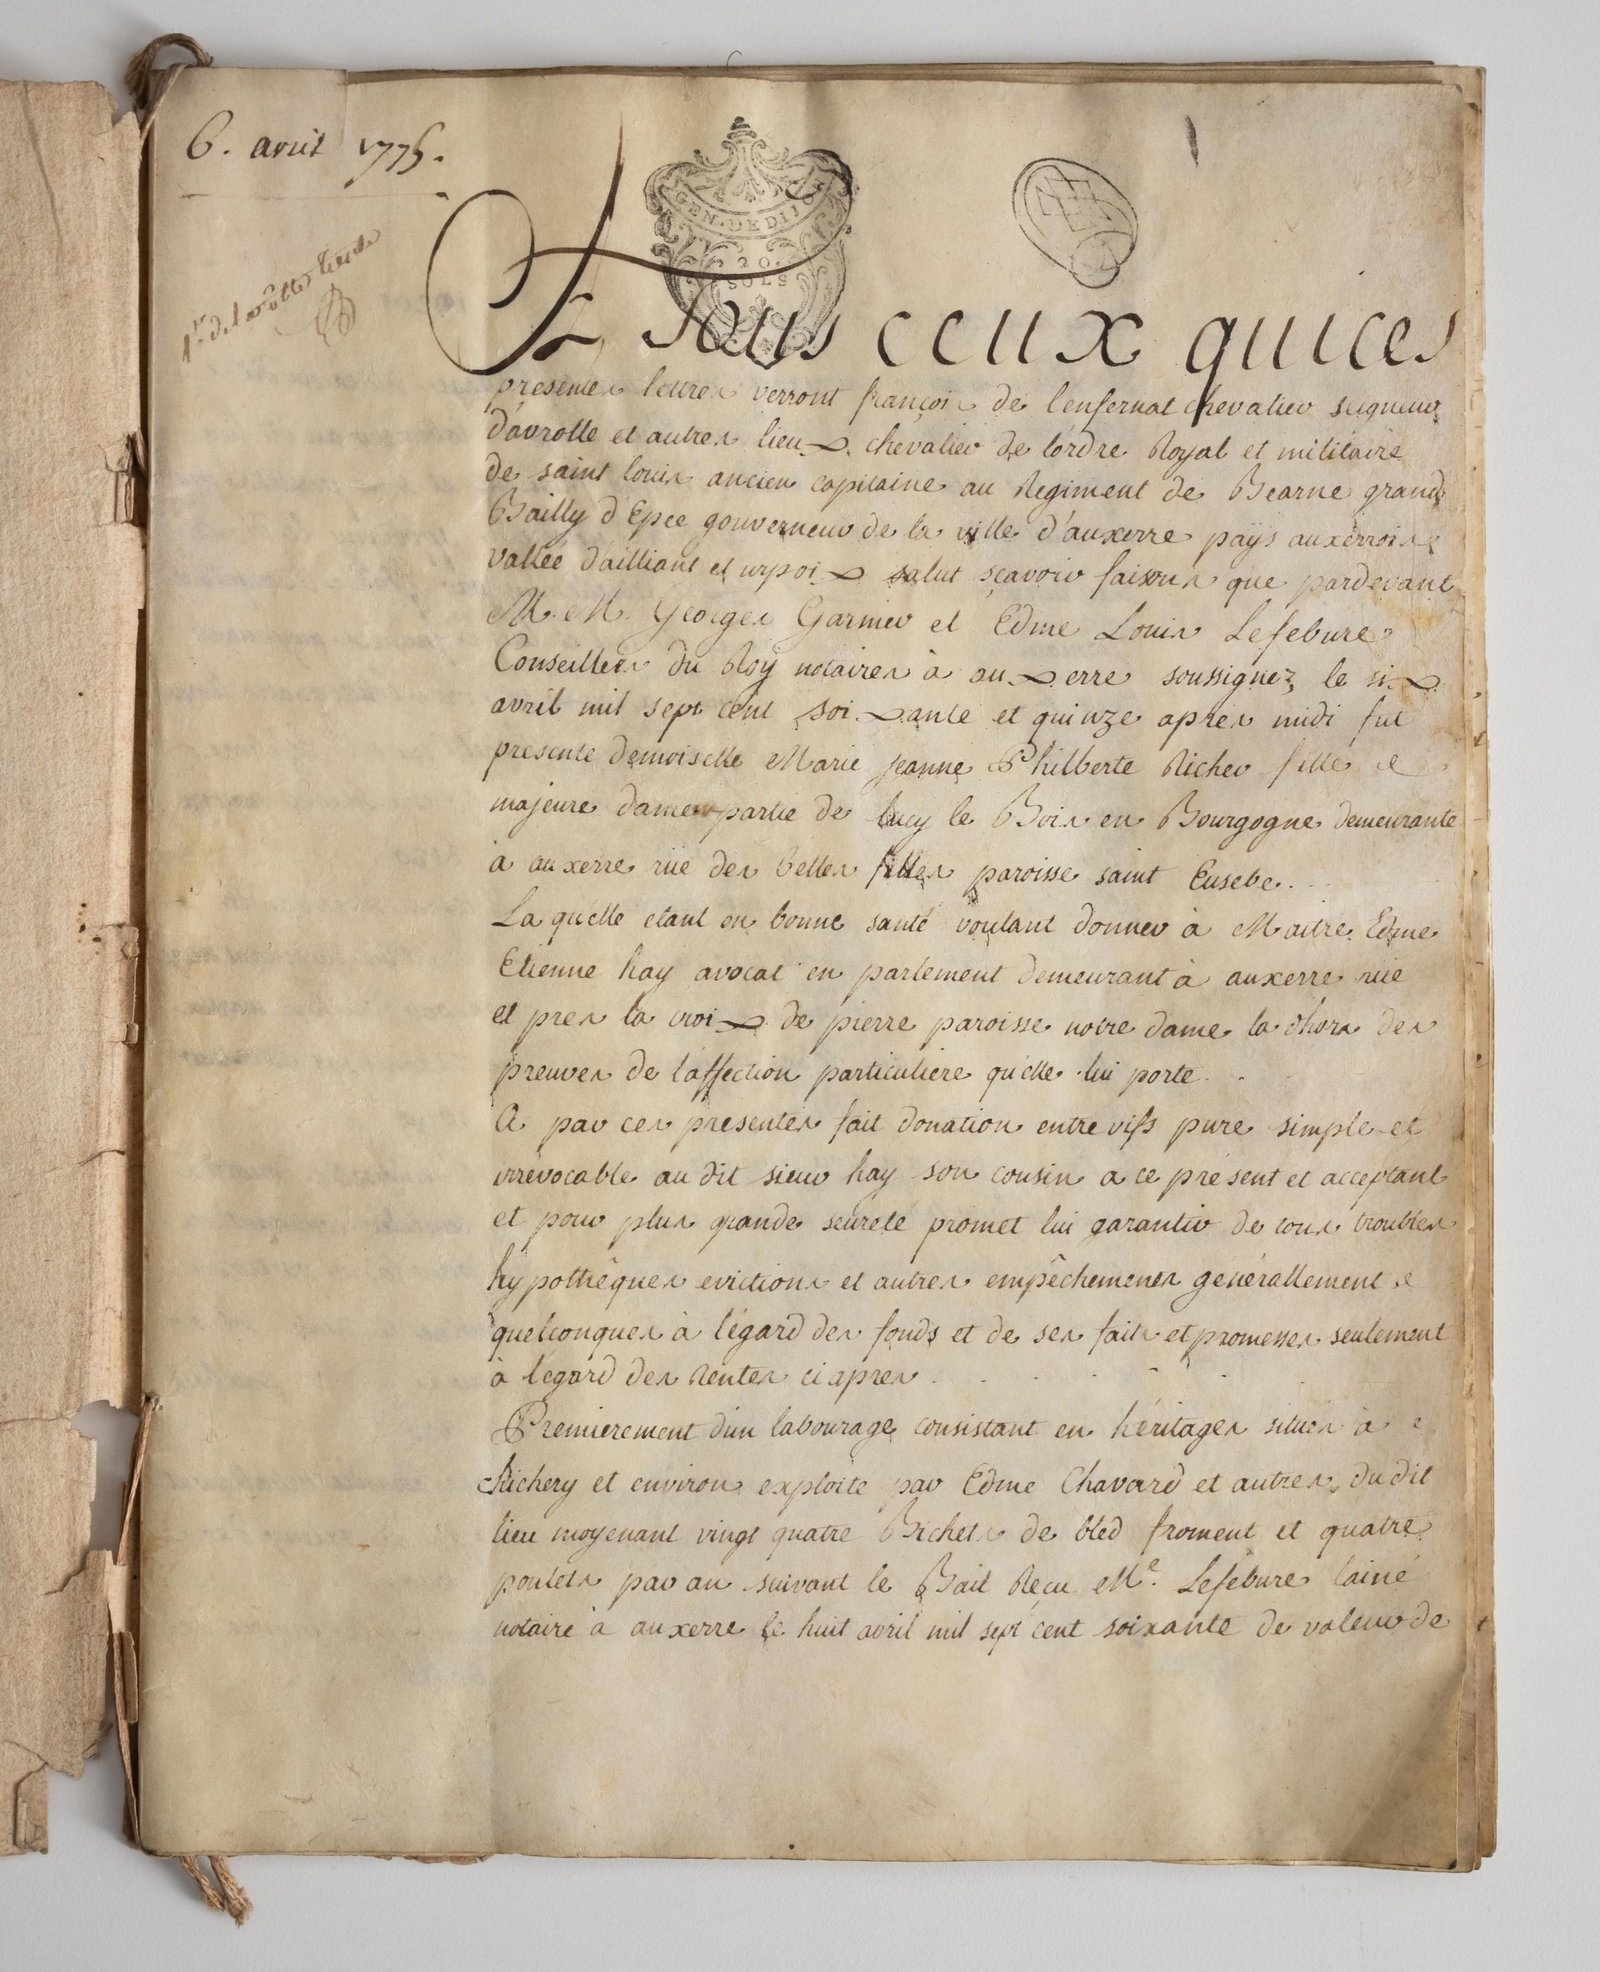 6. avril 1775.
GEN. DE DIJON
20.
SOLS
A Tous ceux qui ces
presentes lettres verront françois de lenfernat chevalier seigneur
d'avrolle et autres lieux. chevalier de l'ordre Royal et militaire
de saint louis ancien capitaine au Regiment de Bearne grand
Bailly d'Epée gouverneur de la ville d'auxerre pays auxerrois
vallée d'ailliant et salut sçavoir faisons que pardevant
M. M. Georges Garnier et Edme Louis Lefebure
Conseillers du Roy notaires à auxerre soussignez, le six
avril mil sept cent soixante et quinze apres midi fut
presente demoiselle Marie jeanne Philberte Richer fille
majeure dame en partie de Lucy le Bois en Bourgogne demeurante
à auxerre rüe des belles filles paroisse saint Eusebe.
Laquelle etant en bonne santé voulant donner à Maitre Edme
Etienne hay avocat en parlement demeurant à auxerre rüe
et pres la croix de pierre paroisse notre dame la d'hors des
preuves de l'affection particuliere qu'elle lui porte.
A par ces presentes fait donation entre vifs pure simple et
irrevocable au dit sieur hay son cousin a ce présent et acceptant
et pour plus grande seureté promet lui garantir de tous troubles
hypothêques evictions et autres empêchements genérallement
quelconques à l'égard des fonds et de ses faits et promesses seulement
à l'egard des Rentes ci apres.
Premierement d'un labourage consistant en héritages situés à
chichery et environ exploité par Edme Chavard et autres du dit
lieu moyenant vingt quatre Bichets de bled froment et quatre
poulets par an suivant le Bail Recu Me. Lefébure l'ainé
notaire à auxerre le huit avril mil sept cent soixante de valeur de